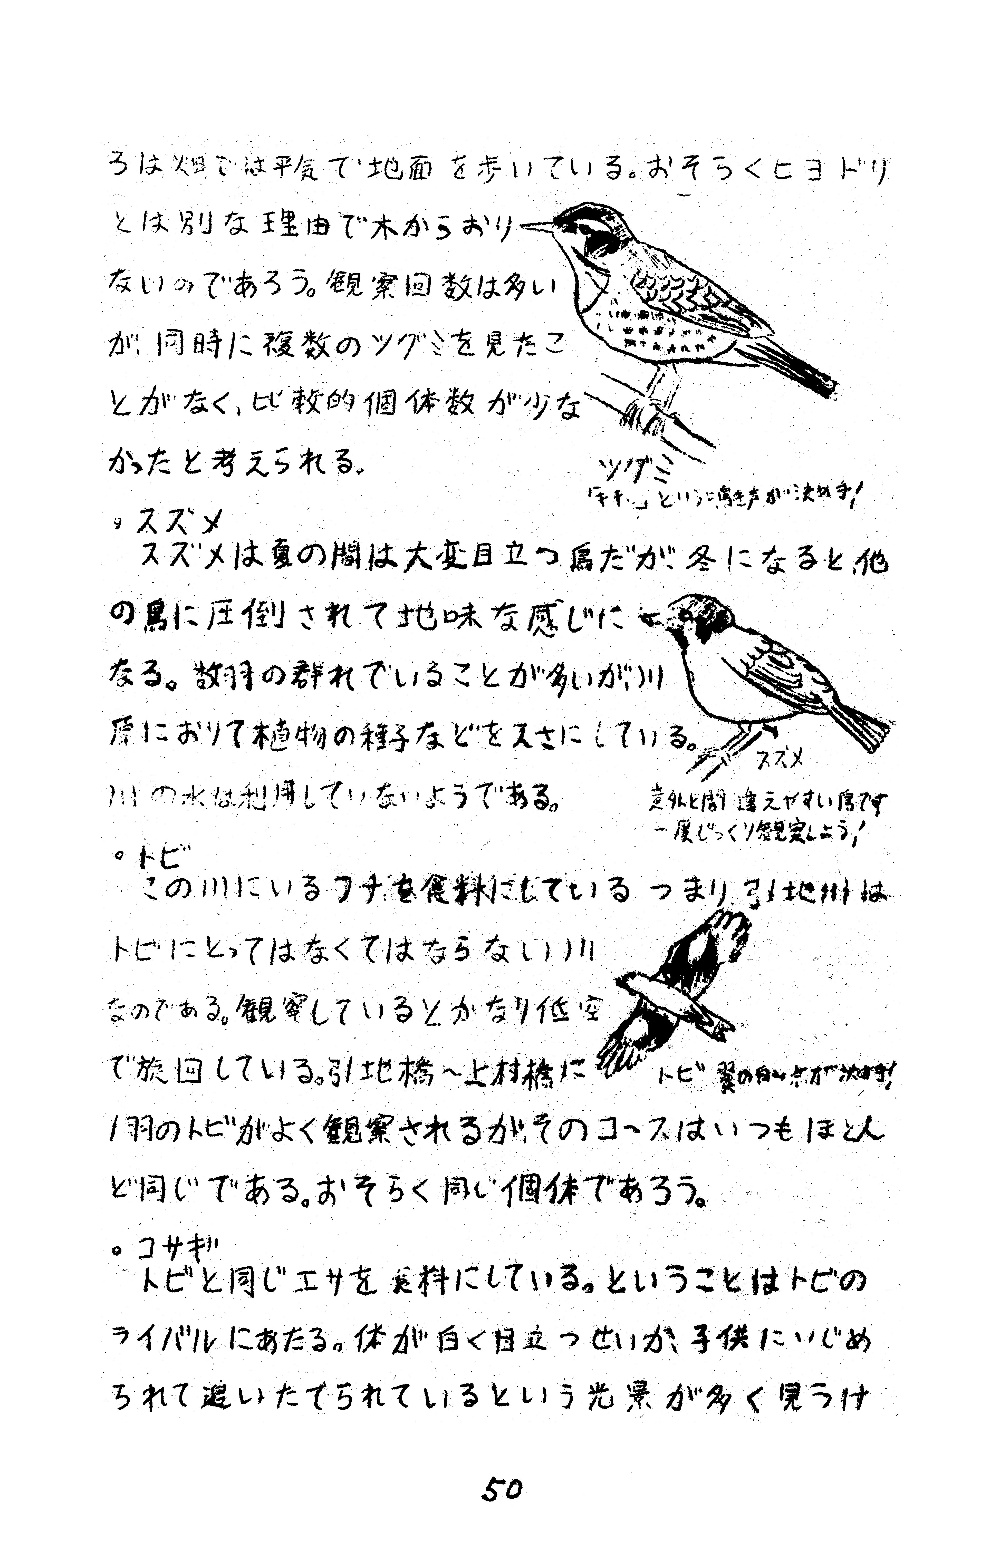 ろは畑では平気で地面を歩いている。おそらくヒヨドリ
とは別な理由で木からおり
ないのであろう。観察回数は多い
が、同時に複数のツグミを見たこ
とがなく、比較的個体数が少な
かったと考えられる。
ツグミ
という鳴き声が決め手!
。スズメ
スズメは夏の間は大変目立つ鳥だが、冬になると、他
の鳥に圧倒されて地味な感じに
なる。数羽の群れでいることが多いが、川
原におりて植物の種子などをエさにしている。
川の水は利用していないようである。
スズメ
意外と間違えやすい鳥です
一度じっくり観察しよう!
。トビ
この川にいるフナを食料にしている つまり引地川は
トビにとってはなくてはならない川
なのである。観察しているとかなり低空
で旋回している。引地橋~上村橋に
トビ 翼の白い点が決め手!
1羽のトビがよく観察されるが、そのコースはいつもほとん
ど同じである。おそらく同じ個体であろう。
。コサギ
トビと同じエサを食料にしている。ということはトビの
ライバルにあたる。体が白く目立つせいか、子供にいじめ
られて追いたてられているという光景が多く見うけ
50